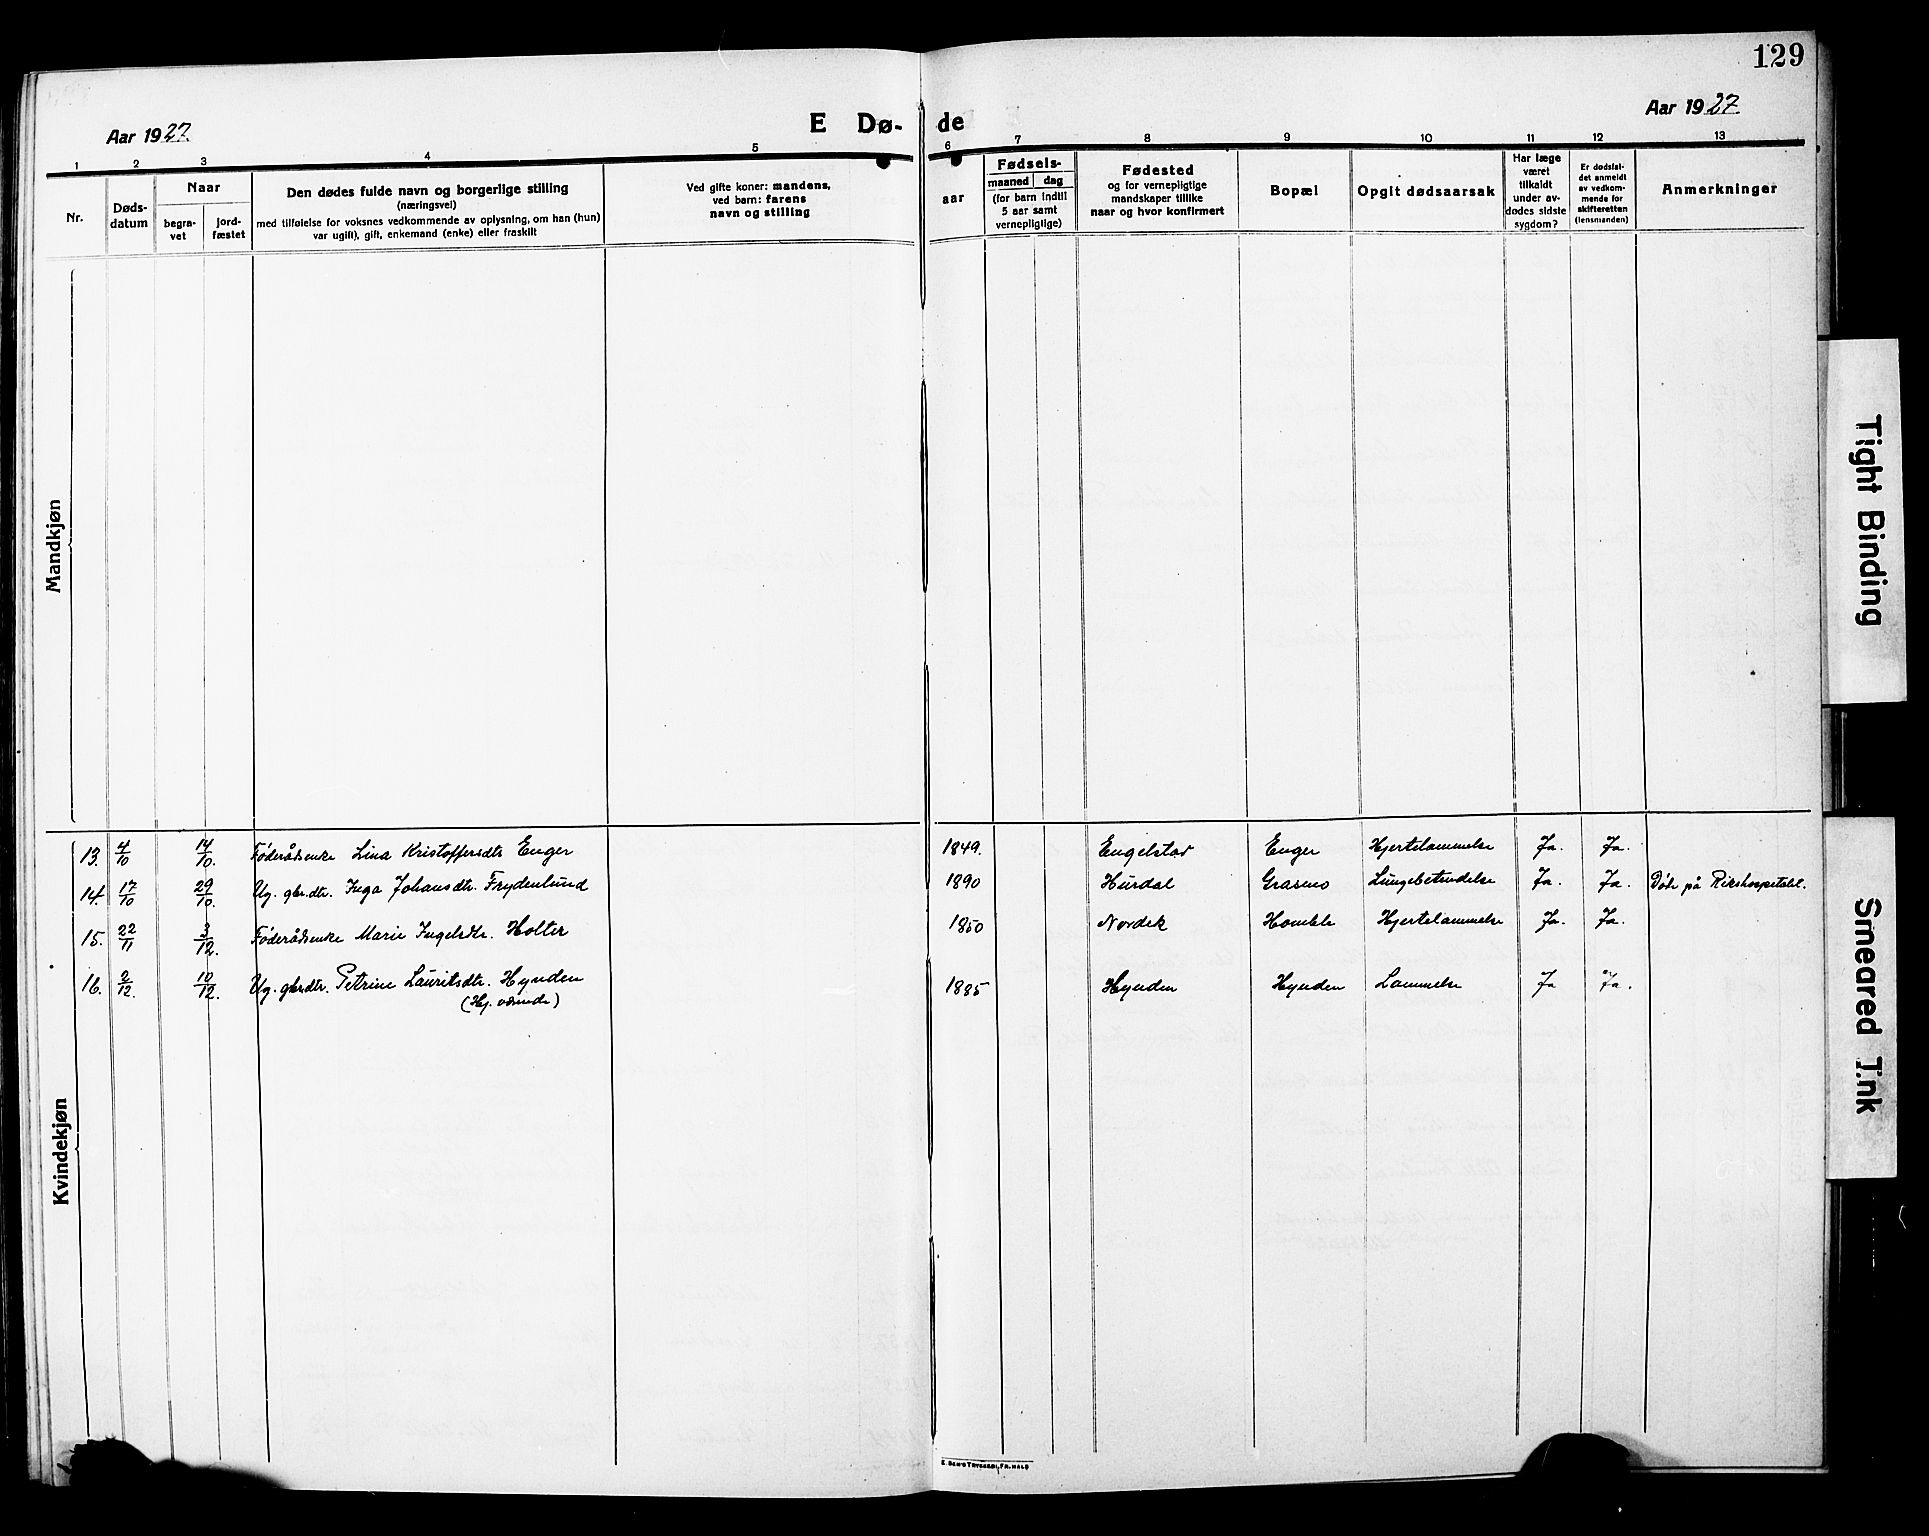 129
Aar 1927.
E Dø-
de
Aar 1927.
1 2 3 4 5 6 7 8 9 10 11 12 13
Nr.
Døds-
datum
Naar
begra-
vet
jord-
fæstet
Den dødes fulde navn og borgerlige stilling
(næringsvei)
med tilføielse for voksnes vedkommende av oplysning, om han (hun)
var ugift, gift, enkemand (enke) eller fraskilt
Ved gifte koner: mandens,
ved barn: farens
navn og stilling
Fødsels-
aar
maaned dag
(for barn indtil
5 aar samt
vernepligtige)
Fødested
og for vernepligtige
mandskaper tillike
naar og hvor konfirmert
Bopæl
Opgit dødsaarsak
Har læge
været
tilkaldt
under av-
dødes sidste
sygdom?
Er dødsfal-
det anmeldt
av vedkom-
mende for
skifteretten
(lensmanden)
Anmerkninger
Mandkjøn
Kvindekjøn
13. 4/10 14/10. Føderådsenke Lina Kristoffersdtr Enger 1849. Engelstad Enger Hjertelammelse Ja. Ja.
14. 17/10 29/10. Ug. gbr.dtr. Inga Johansdtr. Frydenlund 1890 Hurdal Graseno Lungebetendelse Ja. Ja. Døde på Rikshospitalet.
15. 22/11 3/12. Føderådsenke Marie Ingelsdtr. Holter 1850 Nordek Homble Hjertelammelse Ja. Ja.
16. 2/12. 10/12. Ug. gbr.dtr. Petrine Lauritsdtr. Hynden 1885 Hynden Hynden Lammelse Ja Ja.
(Hj. værende)
E. SEM'S TRYKKERI, FR.HALD
Tight Binding
Smeared Ink